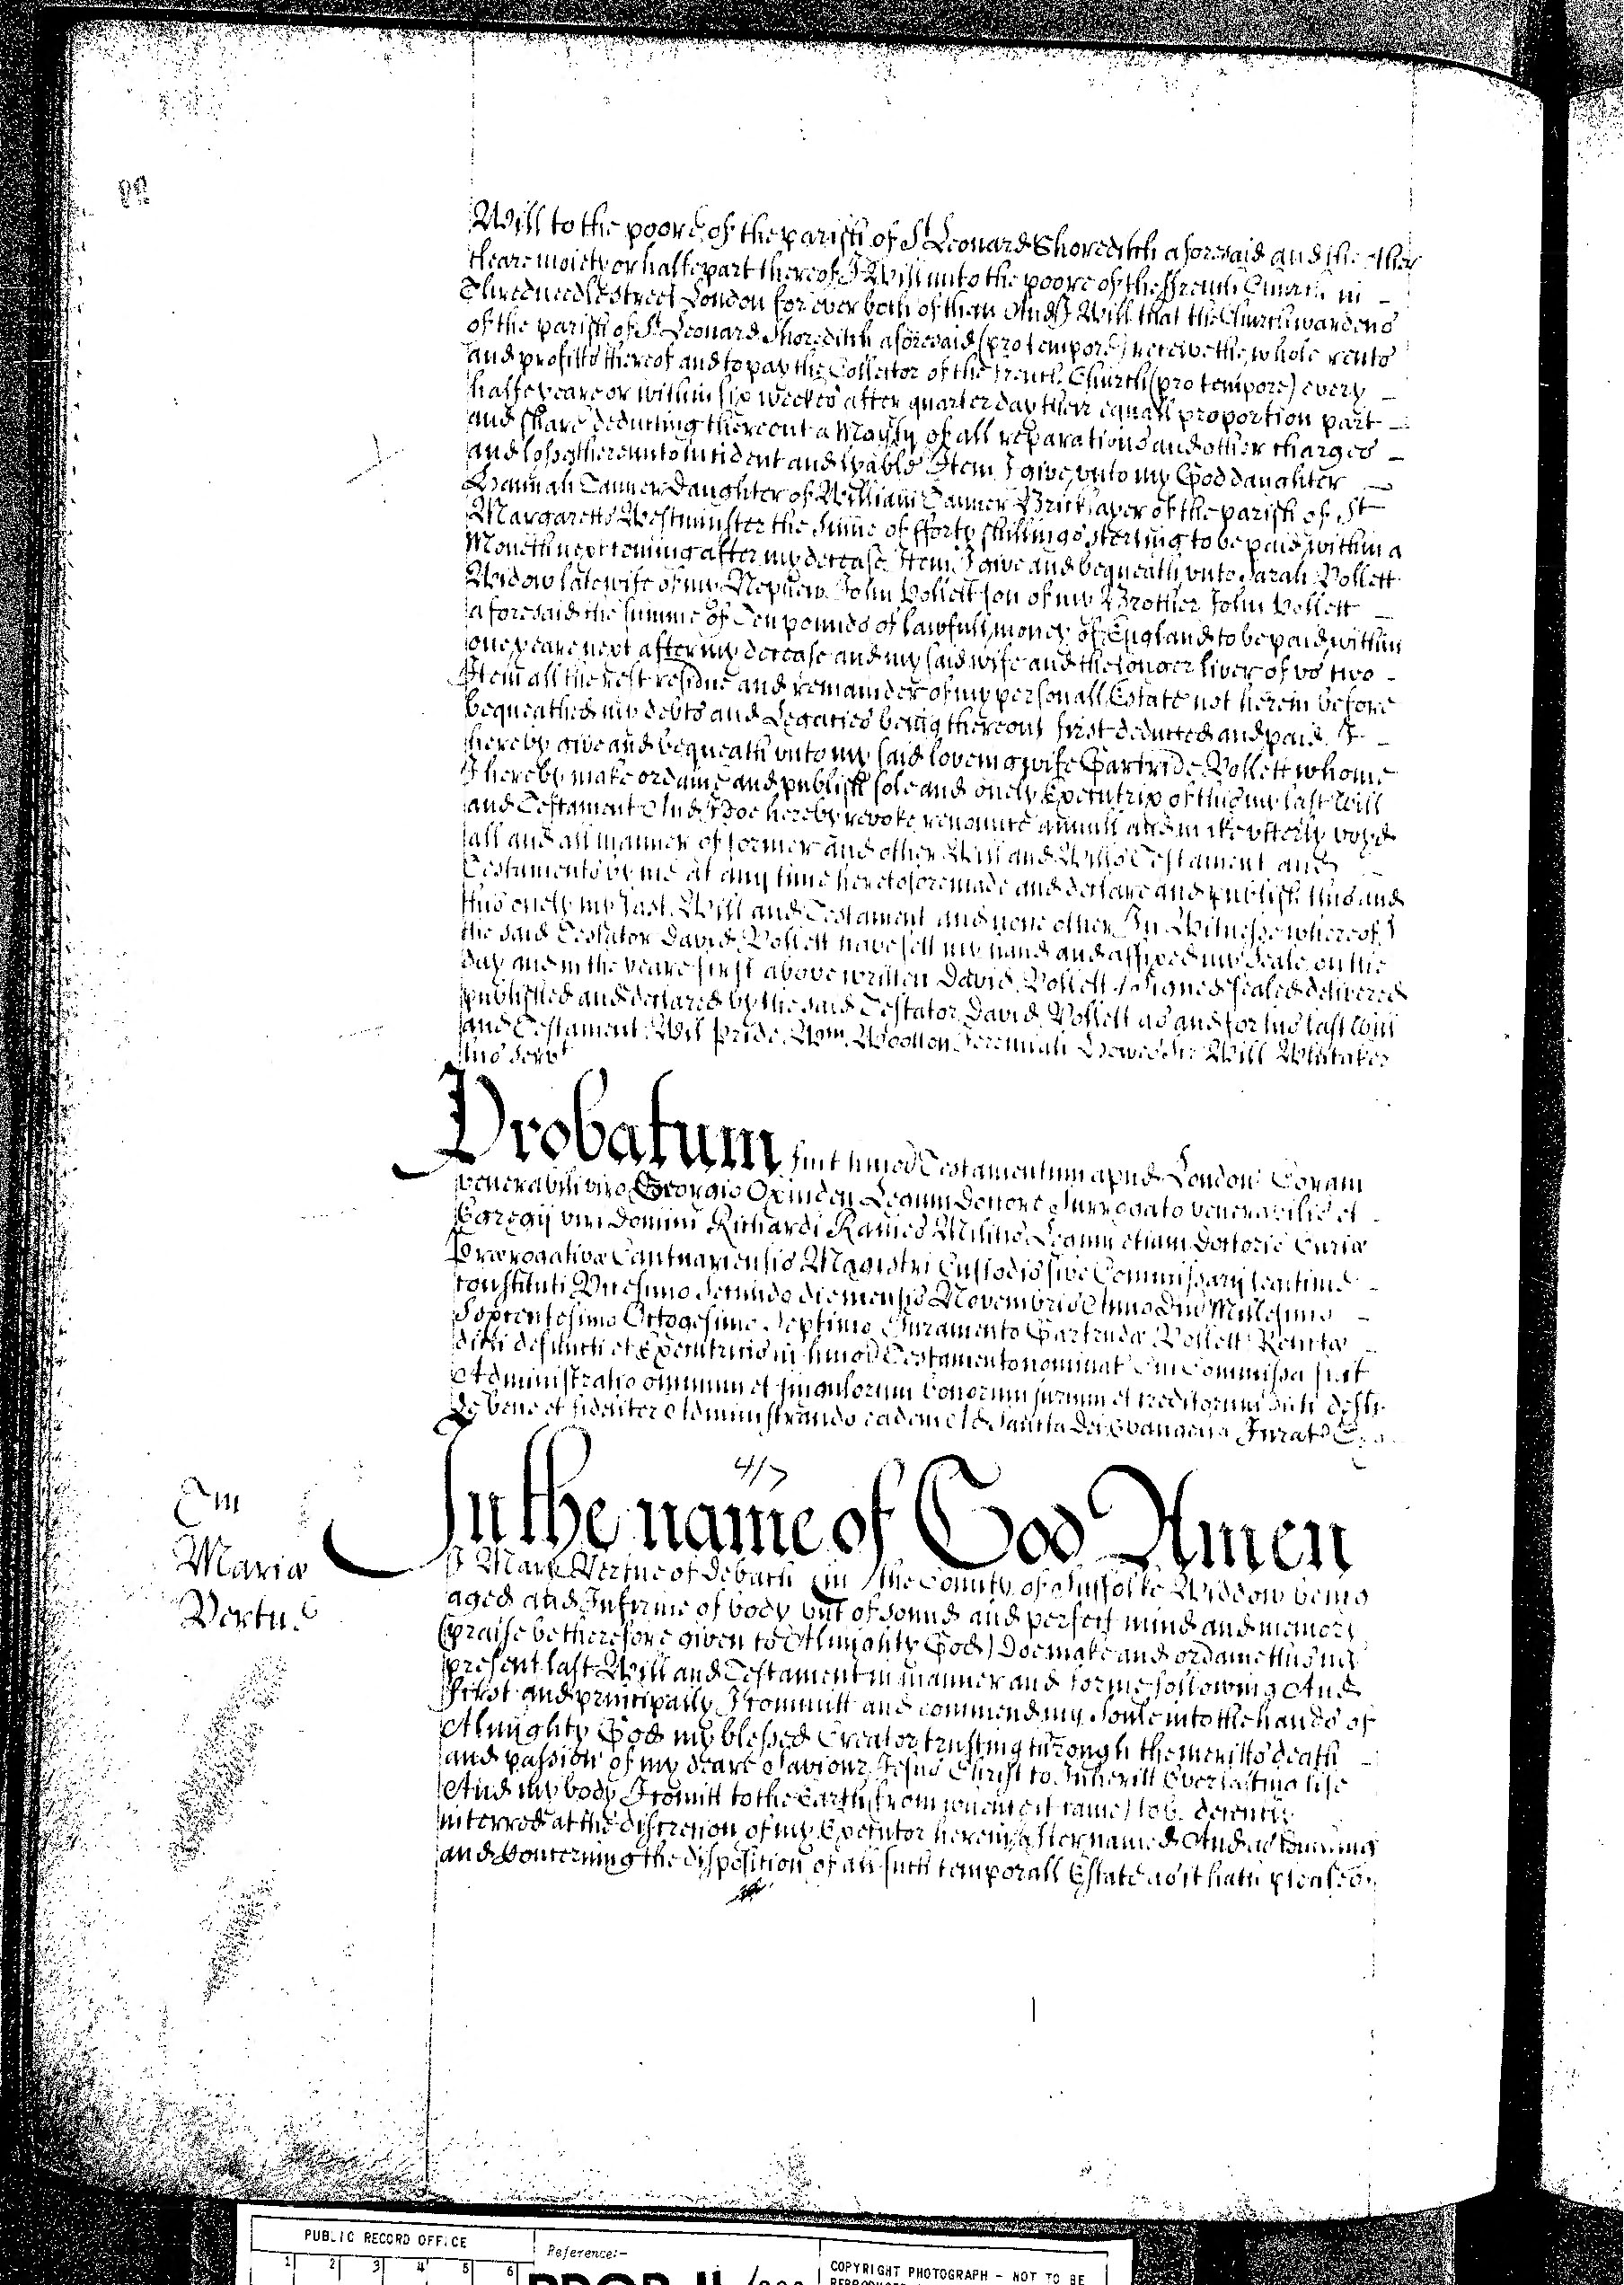 Will to the poore of the parish of St Leonard Shoreditch aforesaid and the other
cleare moiety or halfe part thereof I Will unto the poore of the ffrench Church in
Thredneedle street London for ever both of them And I Will that the Churchwardens
of the parish of St Leonard Shoreditch aforesaid (pro tempore) receive the whole rents
and profitts thereof and to pay the Collector of the french Church (pro tempore) every
halfe yeare or within six weekes after quarter day their equall proportion part
and share deducting thereout a Moyty of all reparations and other charges
and losse thereunto incident and lyable Item I give unto my God daughter
Hannah Tanner Daughter of William Tanner Bricklayer of the parish of St
Margaretts Westminster the sume of fforty shillings sterling to be paid within a
Moneth next coming after my decease Item I give and bequeath unto Sarah Vollett
Widow late wife of my Nephew John Vollett son of my Brother John Vollett
aforesaid the summe of Ten pounds of lawfull money of England to be paid within
one yeare next after my decease and my said wife and the longer liver of us two
Item all the rest residue and remainder of my personall Estate not herein before
bequeathed my debts and Legacies being thereout first deducted and paid I
hereby give and bequeath unto my said loveing wife Gartride Vollett whome
I hereby make ordaine and publish sole and onely Executrix of this my last Will
and Testament And I doe hereby revoke renounce annull and make utterly voyd
all and all manner of former and other Will and Wills Testament and
Testaments by me at any time heretofore made and declare and publish this and
this onely my last Will and Testament and none other In Witnesse whereof I
the said Testator David Vollett have sett my hand and affixed my Seale on the
day and in the yeare first above written David Vollett / Signed sealed delivered
published and declared by the said Testator David Vollett as and for his last Will
and Testament Wil Pride Wm Woollen Jeremiah Howes Will Whitaker
his servt
Probatum fuit humoi Testamentum apud London Coram
venerabili viro Georgio Oxinden Legum Doctore Surrogato venerabilis et
Egregij viri Domini Richardi Raines Militis Legum etiam Doctoris Curiæ
Prærogativæ Cantuariensis Magistri Custodis sive Commissarij legitime
constituti Vicesimo Secundo die mensis Novembris Anno Dni Millesimo
Sexcentesimo Octogesimo Septimo Juramento Gartrudæ Vollett Relictæ
dicti defuncti et Executricis in humoi Testamento nominat Cui Commissa fuit
Administratio omnium et singulorum bonorum jurium et creditorum dicti defti
De bene et fideliter Administrando eadem Ad Sancta Dei Evangelia Jurat
4/7
Tm
Mariæ
Vertue
In the name of God Amen
I Mary Vertue of Debach in the County of Suffolke Widdow being
aged and Infirme of body but of sound and perfect mind and memory
(praise be therefore given to Almighty God) Doe make and ordaine this my
present last Will and Testament in manner and forme following And
first and principally I committ and commend my soule into the hands of
Almighty God my blessed Creator trusting through the meritts death
and passion of my deare Saviour Jesus Christ to Inheritt Everlasting life
And my body I comitt to the Earth (from whence it came) to be decently
interred at the discretion of my Executor hereinafter named And as touching
and Concerning the disposition of all such temporall Estate as it hath pleased
PUBLIC RECORD OFFICE
1 2 3 4 5 6
Reference:-
PROB 11
COPYRIGHT PHOTOGRAPH - NOT TO BE